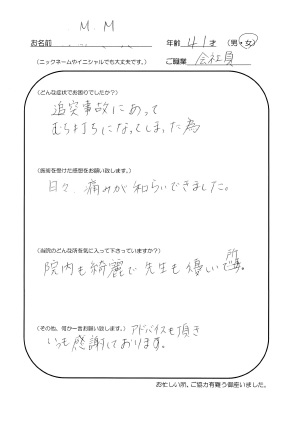 M.M
お名前 年齢 41才 (男・女)
(ニックネームやイニシャルでも大丈夫です。) ご職業 会社員
(どんな症状でお困りでしたか?)
追突事故にあって
むち打ちになってしまった為
(施術を受けた感想をお願い致します。)
日々、痛みが和らいできました。
(当院のどんな所を気に入って下さっていますか?)
院内も綺麗で先生も優しい所です。
(その他、何か一言お願い致します。) アドバイスも頂き
いつも感謝しております。
お忙しい所、ご協力有難う御座いました。